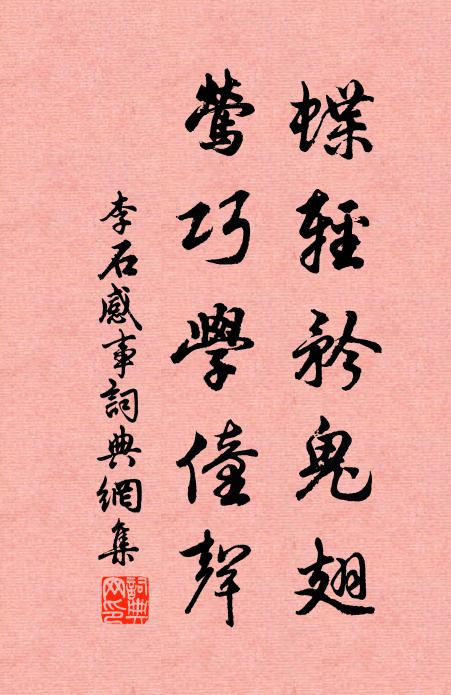 蝶輕矜鬼翅
鶯巧學僮聲
李石感事詞典網集
詞典网印